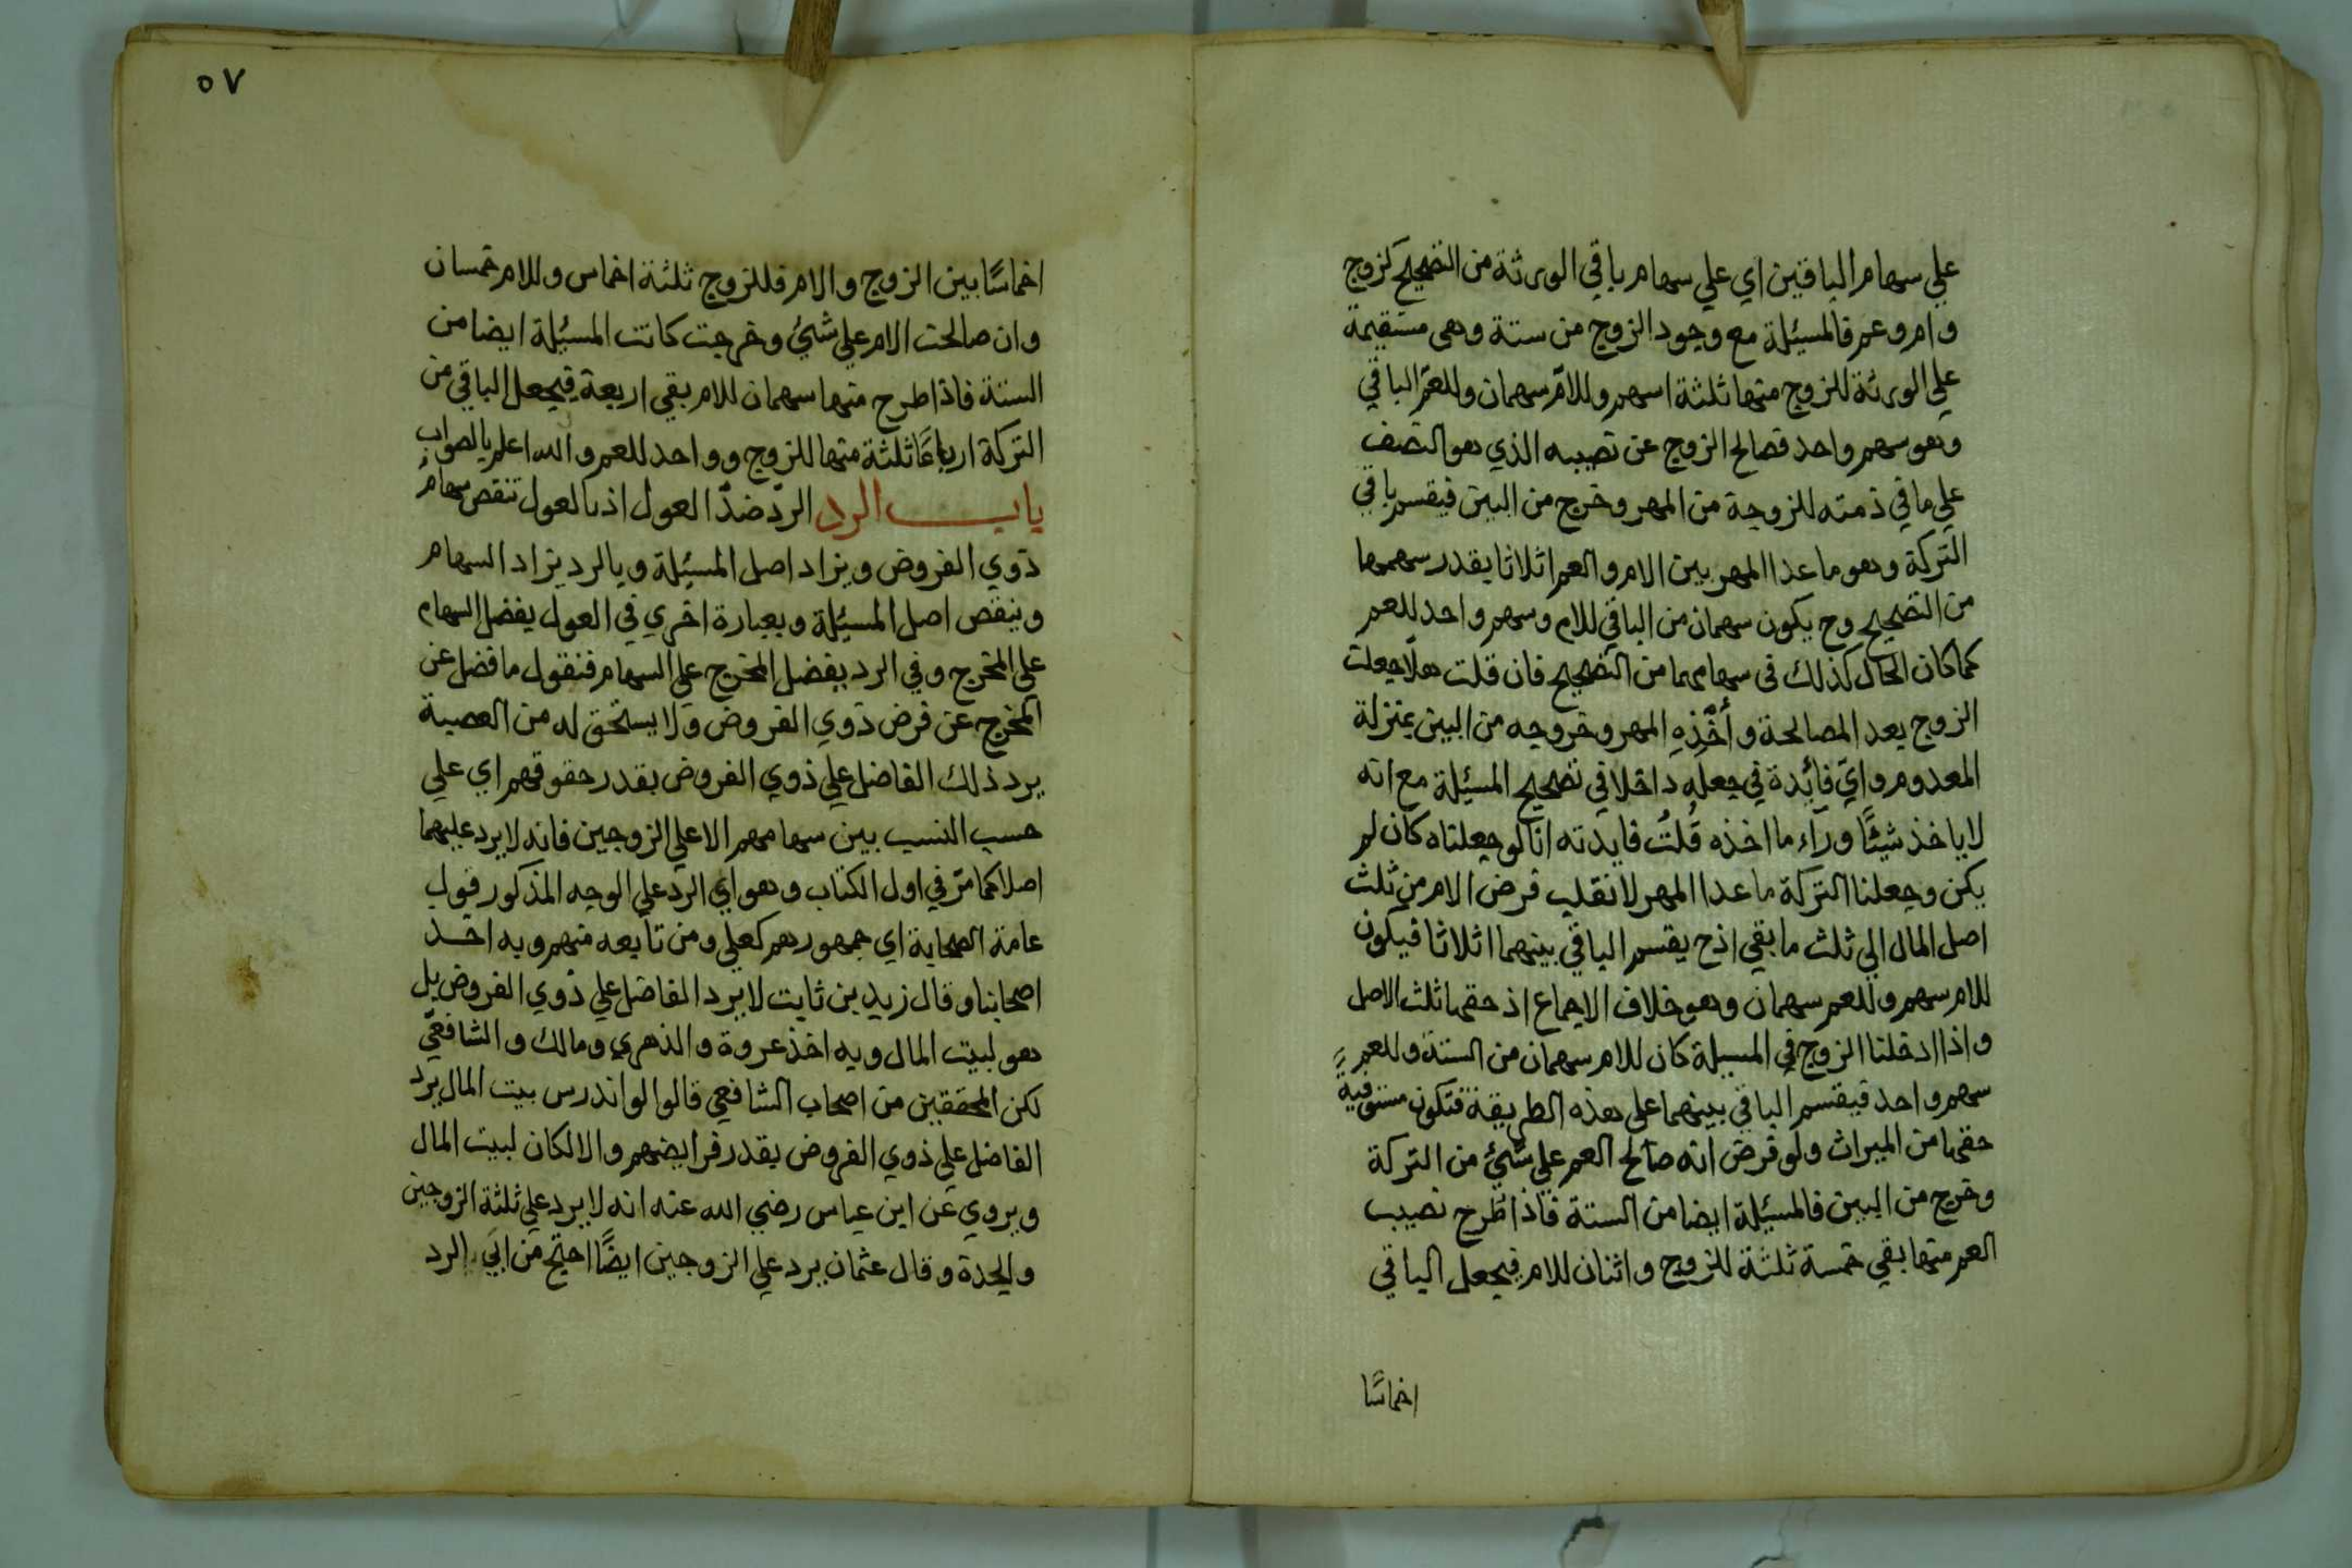 علي سهام الباقين اي علي سهام باقي الورثة من التصحيح كزوج
وام وعم فالمسئلة مع وجود الزوج من ستة وهي مستقيمة
علي الورثة للزوج منها ثلثة اسهم وللام سهمان وللعم الباقي
وهو سهم واحد فصالح الزوج عن نصيبه الذي هو النصف
علي ما في ذمته للزوجة من المهر وخرج من البين فيقسم باقي
التركة وهو ما عدا المهر بين الام والعم اثلاثا بقدر سهمهما
من التصحيح وح يكون سهمان من الباقي للام وسهم واحد للعم
كما كان الحال كذلك في سهامهما من التصحيح فان قلت هلّا جعلت
الزوج بعد المصالحة وأَخْذِهِ المهر وخروجه من البين بمنزلة
المعدوم واي فائدة في جعله داخلا في تصحيح المسئلة مع انه
لا ياخذ شيئًا ورآء ما اخذه قُلتُ فايدته انا لو جعلناه كان لم
يكن وجعلنا التركة ما عدا المهر لانقلب فرض الام من ثلث
اصل المال الي ثلث ما بقي اذح يقسم الباقي بينهما اثلاثا فيكون
للام سهم وللعم سهمان وهو خلاف الاجماع اذ حقها ثلث الاصل
واذا ادخلنا الزوج في المسيلة كان للام سهمان من الستة وللعم
سهم واحد فيقسم الباقي بينهما علي هذه الطريقة فتكون مستوفيةً
حقها من الميراث ولو فرض انه صالح العم علي شئ من التركة
وخرج من البين فالمسئلة ايضا من الستة فاذا طرح نصيب
العم منها بقي خمسة ثلثة للزوج واثنان للام فيجعل الباقي
اخماسًا
٥٧
اخماسًا بين الزوج والام فللزوج ثلثة اخماس وللام خمسان
وان صالحت الام علي شئ وخرجت كانت المسئلة ايضا من
الستة فاذا طرح منها سهمان للام بقي اربعة فيجعل الباقي من
التركة ارباعًا ثلثة منها للزوج وواحد للعم والله اعلم بالصواب
باب الرد الردّ ضدّ العول اذ بالعول تنقص سهام
ذوي الفروض ويزاد اصل المسئلة وبالرد يزاد السهام
وينقص اصل المسئلة وبعبارة اخري في العول يفضل السهام
علي المخرج وفي الرد يفضل المخرج علي السهام فنقول ما فضل عن
المخرج عن فرض ذوي الفروض ولا يستحق له من العصبة
يرد ذلك الفاضل علي ذوي الفروض بقدر حقوقهم اي علي
حسب النسب بين سهامهم الا علي الزوجين فانه لا يرد عليهما
اصلا كما مرّ في اول الكتاب وهو اي الرد علي الوجه المذكور قول
عامة الصحابة اي جمهورهم كعلي ومن تابعه منهم وبه اخذ
اصحابنا وقال زيد بن ثابت لا يرد الفاضل علي ذوي الفروض بل
هو لبيت المال وبه اخذ عروة والذهري ومالك والشافعيّ
لكن المحققين من اصحاب الشافعي قالوا لو اندرس بيت المال يرد
الفاضل علي ذوي الفروض بقدر فرايضهم والا لكان لبيت المال
ويروي عن ابن عباس رضي الله عنه انه لا يرد علي ثلثة الزوجين
والجدة وقال عثمان يرد علي الزوجين ايضًا احتج من ابي الرد